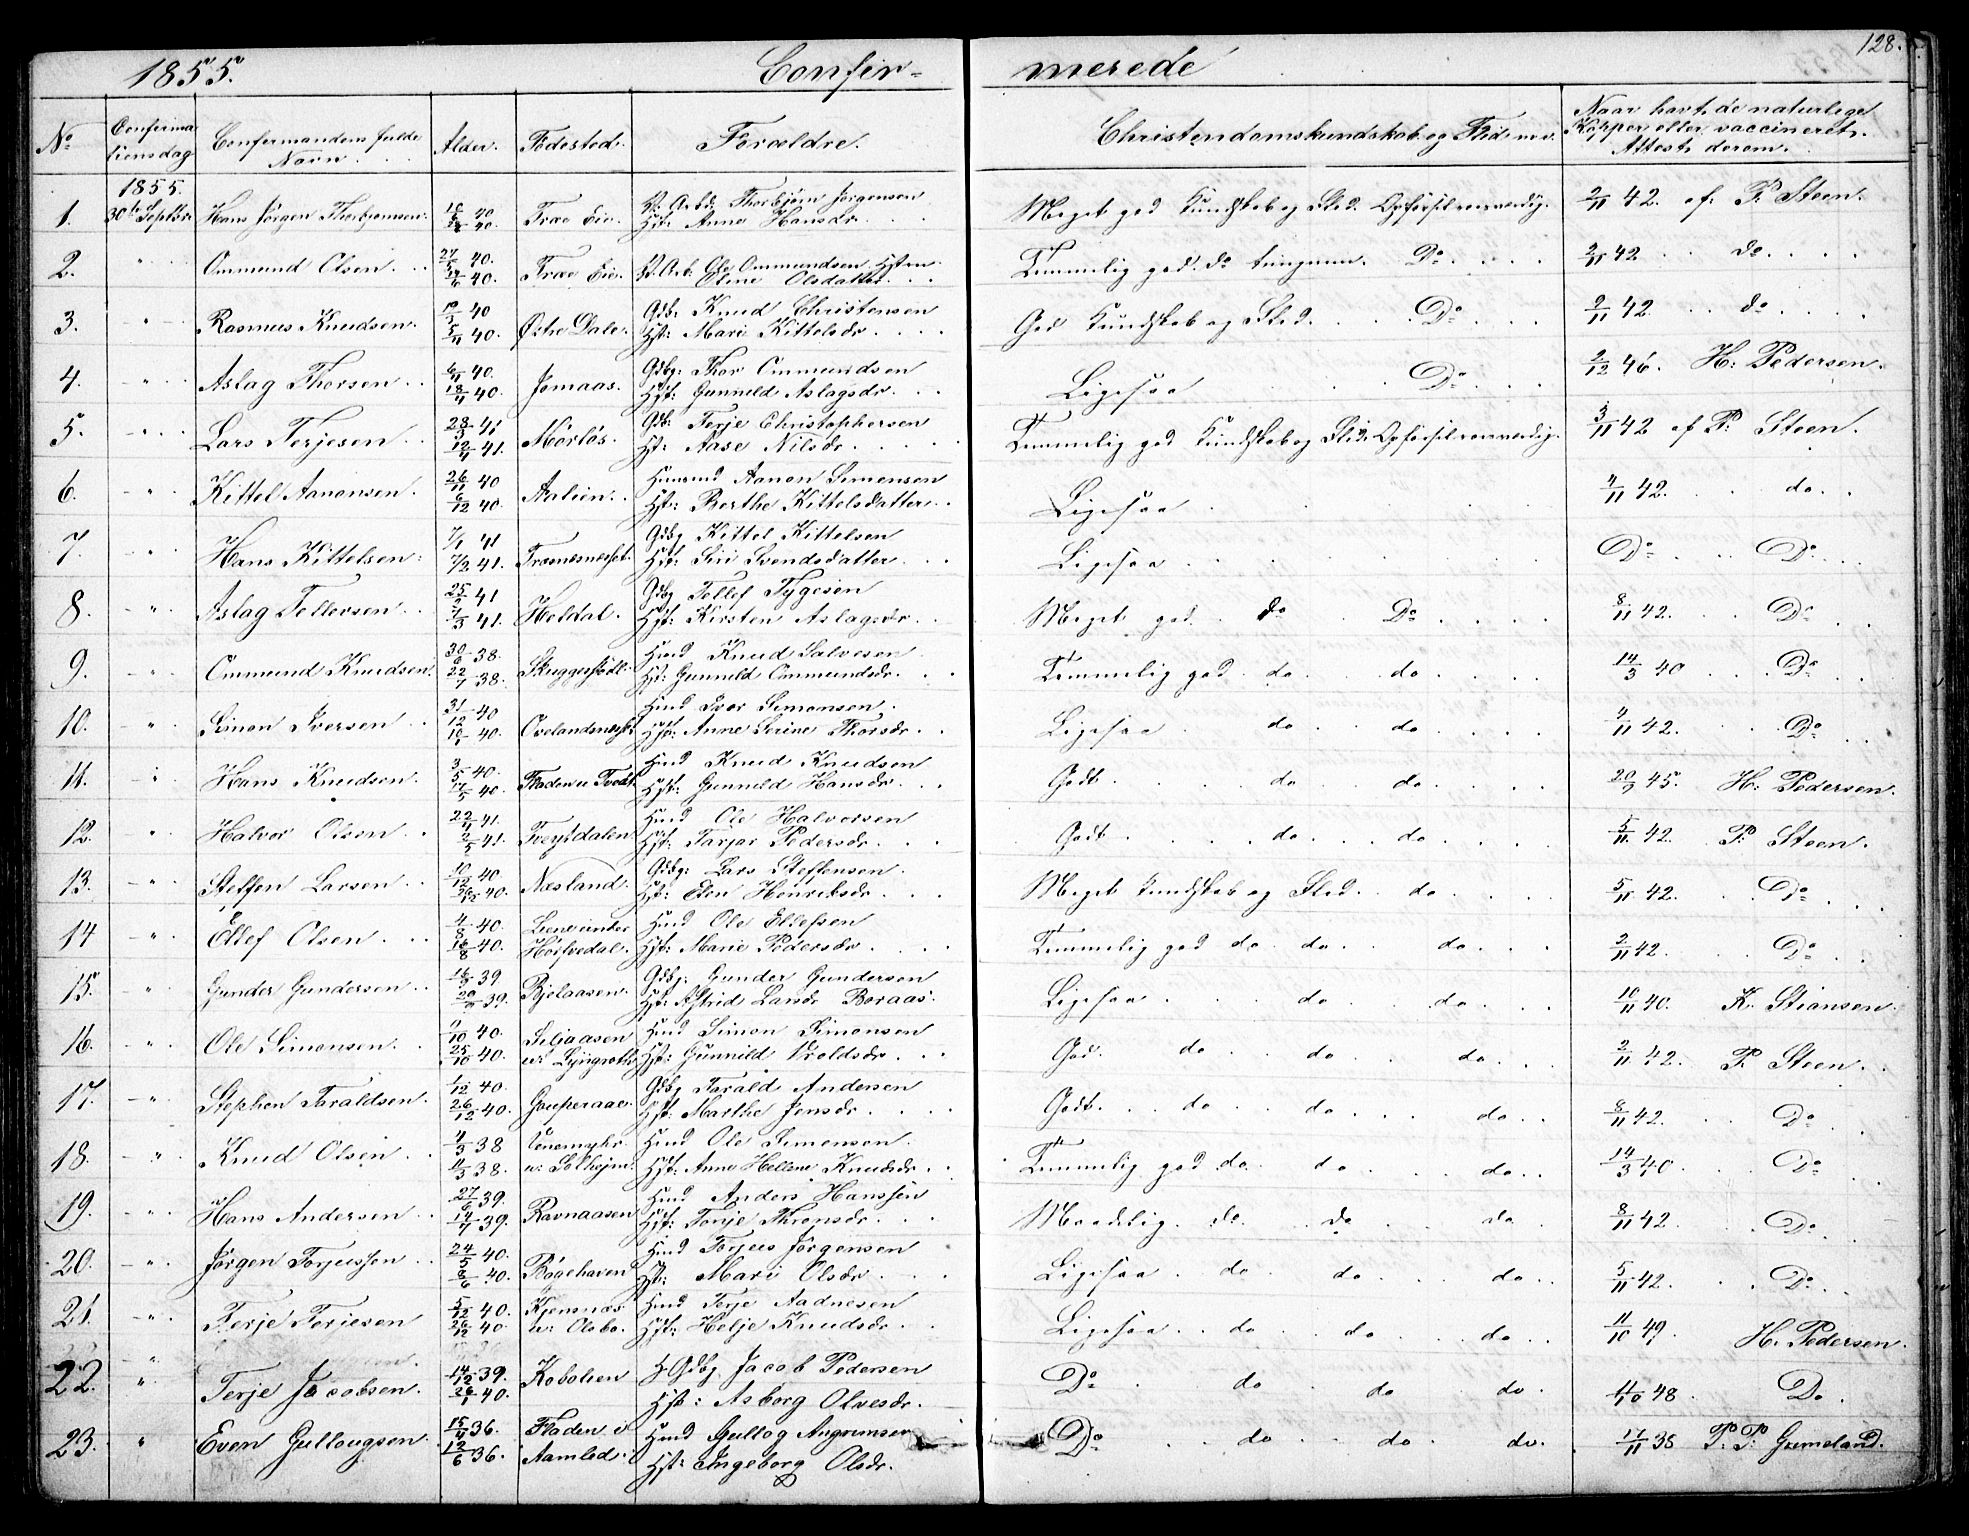 128.
1855. Confir- merede
No Confirmationsdag Confirmandens fulde Navn. Alder. Fødested. Forældre. Christendomskundskab og Flid m. v. Naar havt de naturlige Kopper eller vaccineret. Attest derom.
1. 1855. 30te Septbr. Hans Jörgen Thorbjornsen. 40. 40. Træe Eie. Thorbjörn Jörgensen Hst: Anne Hansdr. Meget god Kundskab og Flid. Opförsel roesværdig. 2/11 42. af P. Steen.
2. " Ommund Olsen. 27/5 40. 40. Træe Eie. Ole Ommundsen Hstru Oline Olsdatter. Temmelig god do Do 2/11 42 do
3. " Rasmus Knudsen. 40 40. Østre Dale. Gdb: Knud Christensen Hst: Mari Kittelsdr. God Kundskab og Flid. Do 2/11 42 do
4. " Aslag Thorsen 40. 18/4 40. Jomaas. Gdbg: Thor Ommundsen Hst: Gunneld Aslagsdr. Ligesaa Do 2/12 46. H. Pedersen.
5. " Lars Terjesen 28/3 41 12/4 41. Mörlös. Gdb: Terje Christophersen Hst: Aase Nilsdr. Temmelig god Kundskab og Flid. Opförsel roesværdig. 3/11 42 af P. Steen.
6. " Kittel Aanonsen. 26/11 40 6/12 40. Aalien. Huusmd Aanon Simensen Hst: Berthe Kittelsdatter. Ligesaa 4/11 42. do.
7. " Hans Kittelsen. 7/1 41 7/2 41. Gdbg Kittel Kittelsen Hst: Siri Svendsdatter. Ligesaa Do Do
8. " Aslag Tellevsen 25/2 41 7/3 41. Heldal. Gdbg Tellef Tygesen Hst: Kirsten Aslagsdr. Meget god do Do 8/11 42. Do
9. " Ommund Knudsen. 30/6 38. 22/7 38. Skuggestödl. Husmd Knud Salvesen Hst: Gunneld Ommundsdr. Temmelig god do do 14/3 40 Do
10. " Simon Iversen 31/12 40 40. Ovelandsmyr Husmd Iver Simonsen. Hst: Anne Serine Thorsdr. Ligesaa do do 4/11 42. Do
11. " Hans Knudsen. 3/5 40. 17/5 40. Fladen u Tvedt. Husmd Knud Knudsen Hst: Gunneld Hansdr. Godt do do 20/9 45. H. Pedersen.
12. " Halvor Olsen 22/4 41. 2/5 41. Tveitdalen Husmd Ole Halvorsen Hst: Tarjer Pedersdr. Godt do do 5/11 42. P. Steen.
13. " Steffen Larsen 10/12 40 26/12 40. Næsland. Gdbg: Lars Steffensen Hst: Elen Henriksdr. Meget Kundskab og Flid. do 5/11 42. Do
14 " Ellef Olsen. 4/8 40. 16/8 40. Liene under Höifvedal. Husmd Ole Ellefsen Hst: Marie Pedersdr. Temmelig god do do do 2/11 42. Do
15. " Gunder Gundersen 39 39. Bjelaasen. Gdbg: Gunder Gundersen Hst: Astrid Larsdr Boraas. Ligesaa do do 10/11 40. K. Stiansen.
16. " Ole Simonsen. 11/10 40. 25/10 40. Siljaasen u: Lyngroth. Husmd Simon Simonsen Hst: Gunnild Vroldsdr. God. do do do 2/11 42. P. Steen.
17. " Stephen Taraldsen. 1/12 40. 26/12 40. Gauperaae. Gdbg Tarald Andersen Hst: Marthe Jensdr. Godt. do do do 8/11 42. Do
18. " Knud Olsen 4/3 38 11/3 38. Venemyhr u: Solhejm. Husmd Ole Simensen. Hst: Anne Hellene Knudsdr. Temmelig god do. do do 14/3 40. Do
19. " Hans Andersen 27/6 39. 14/7 39. Ravnaasen Husmd Anders Hanssen Hst: Tonje Thronsdr. Maadelig. do. do do 8/11 42. Do
20. " Jörgen Torjussen 24/5 40. 8/6 40. Bögehaven Husmd Torjus Jörgensen Hst: Mari Olsdr. Ligesaa do do do 5/11 42. Do
21. " Terje Terjesen 5/12 40. 26/12 40. Kjensnæs u: Olsbo. Husmd Terje Aadnesen Hst: Helje Knudsdr. Ligesaa do do do 11/10 49. H. Pedersen.
22. " Terje Jacobsen. 14/12 39. 26/1 40. Kobolien Gdbg. Jacob Pedersen Hst: Asborg Olvesdr. Do do do do. 11/10 48 Do
23. " Even Gullougsen 15/4 36. 12/6 36. Fladen u Aamlid. Husmd Gullog Angrimsen Hst: Ingeborg Olsdr. Do do do do. 17/11 38 P. P. Grimeland.